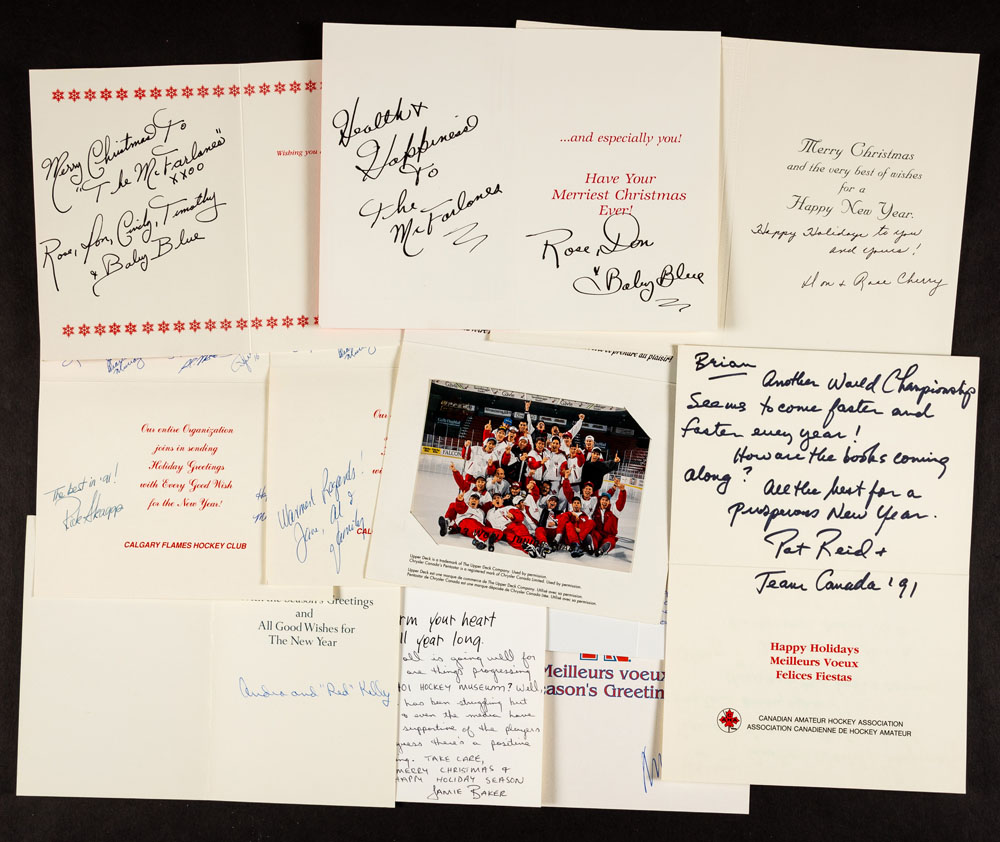 Merry Christmas To
"The McFarlanes"
XXOO
Rose, Don, Cindy, Timothy
& Baby Blue
Wishing you
Health &
Happiness
To
The
McFarlanes
...and especially you!
Have Your
Merriest Christmas
Ever!
Rose, Don
& Baby Blue
Merry Christmas
and the very best of wishes
for a
Happy New Year.
Happy Holidays to you
and yours!
Don & Rose Cherry
Our entire Organization
joins in sending
Holiday Greetings
with Every Good Wish
for the New Year!
The best in '91!
CALGARY FLAMES HOCKEY CLUB
Ou
Warmest Regards!
CAL
prendre au plaisir!
FALCON
Upper Deck is a trademark of The Upper Deck Company. Used by permission.
Chrysler Canada's Pentastar is a registered mark of Chrysler Canada Limited. Used with permission.
Upper Deck est une marque de commerce de The Upper Deck Company. Utilisé avec sa permission.
Pentastar de Chrysler Canada est une marque déposée de Chrysler Canada ltée. Utilisé avec sa permission.
Brian
Another World Championship
seems to come faster and
faster every year!
How are the books coming
along? All the best for a
prosperous New Year.
Pat Reid &
Team Canada '91
Happy Holidays
Meilleurs Voeux
Felices Fiestas
CANADIAN AMATEUR HOCKEY ASSOCIATION
ASSOCIATION CANADIENNE DE HOCKEY AMATEUR
Season's Greetings
and
All Good Wishes for
The New Year
Andra and "Red" Kelly
rm your heart
ll year long.
all is going well for
are things progressing
101 HOCKEY MUSEUM? Well,
has been struggling but
even the media have
supportive of the players
guess there's a positive
ng. TAKE CARE,
MERRY CHRISTMAS &
HAPPY HOLIDAY SEASON
JAMIE BAKER
Meilleurs voeux
eason's Greetin